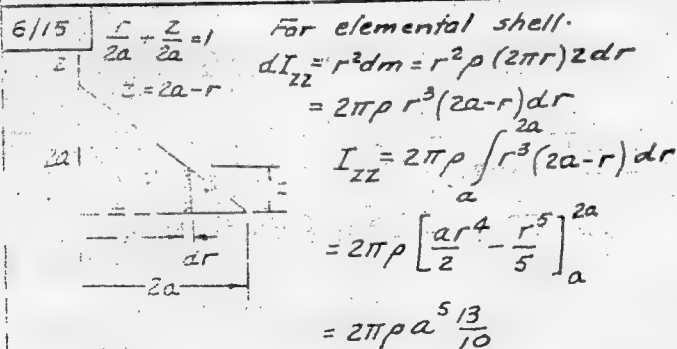 6/15
r/2a + z/2a = 1
z = 2a-r
For elemental shell.
dI_zz = r²dm = r²ρ(2πr)zdr
= 2πρ r³(2a-r)dr
I_zz = 2πρ ∫_a^2a r³(2a-r)dr
= 2πρ [ar⁴/2 - r⁵/5]_a^2a
= 2πρa⁵ 13/10
z
2a
z
dr
2a